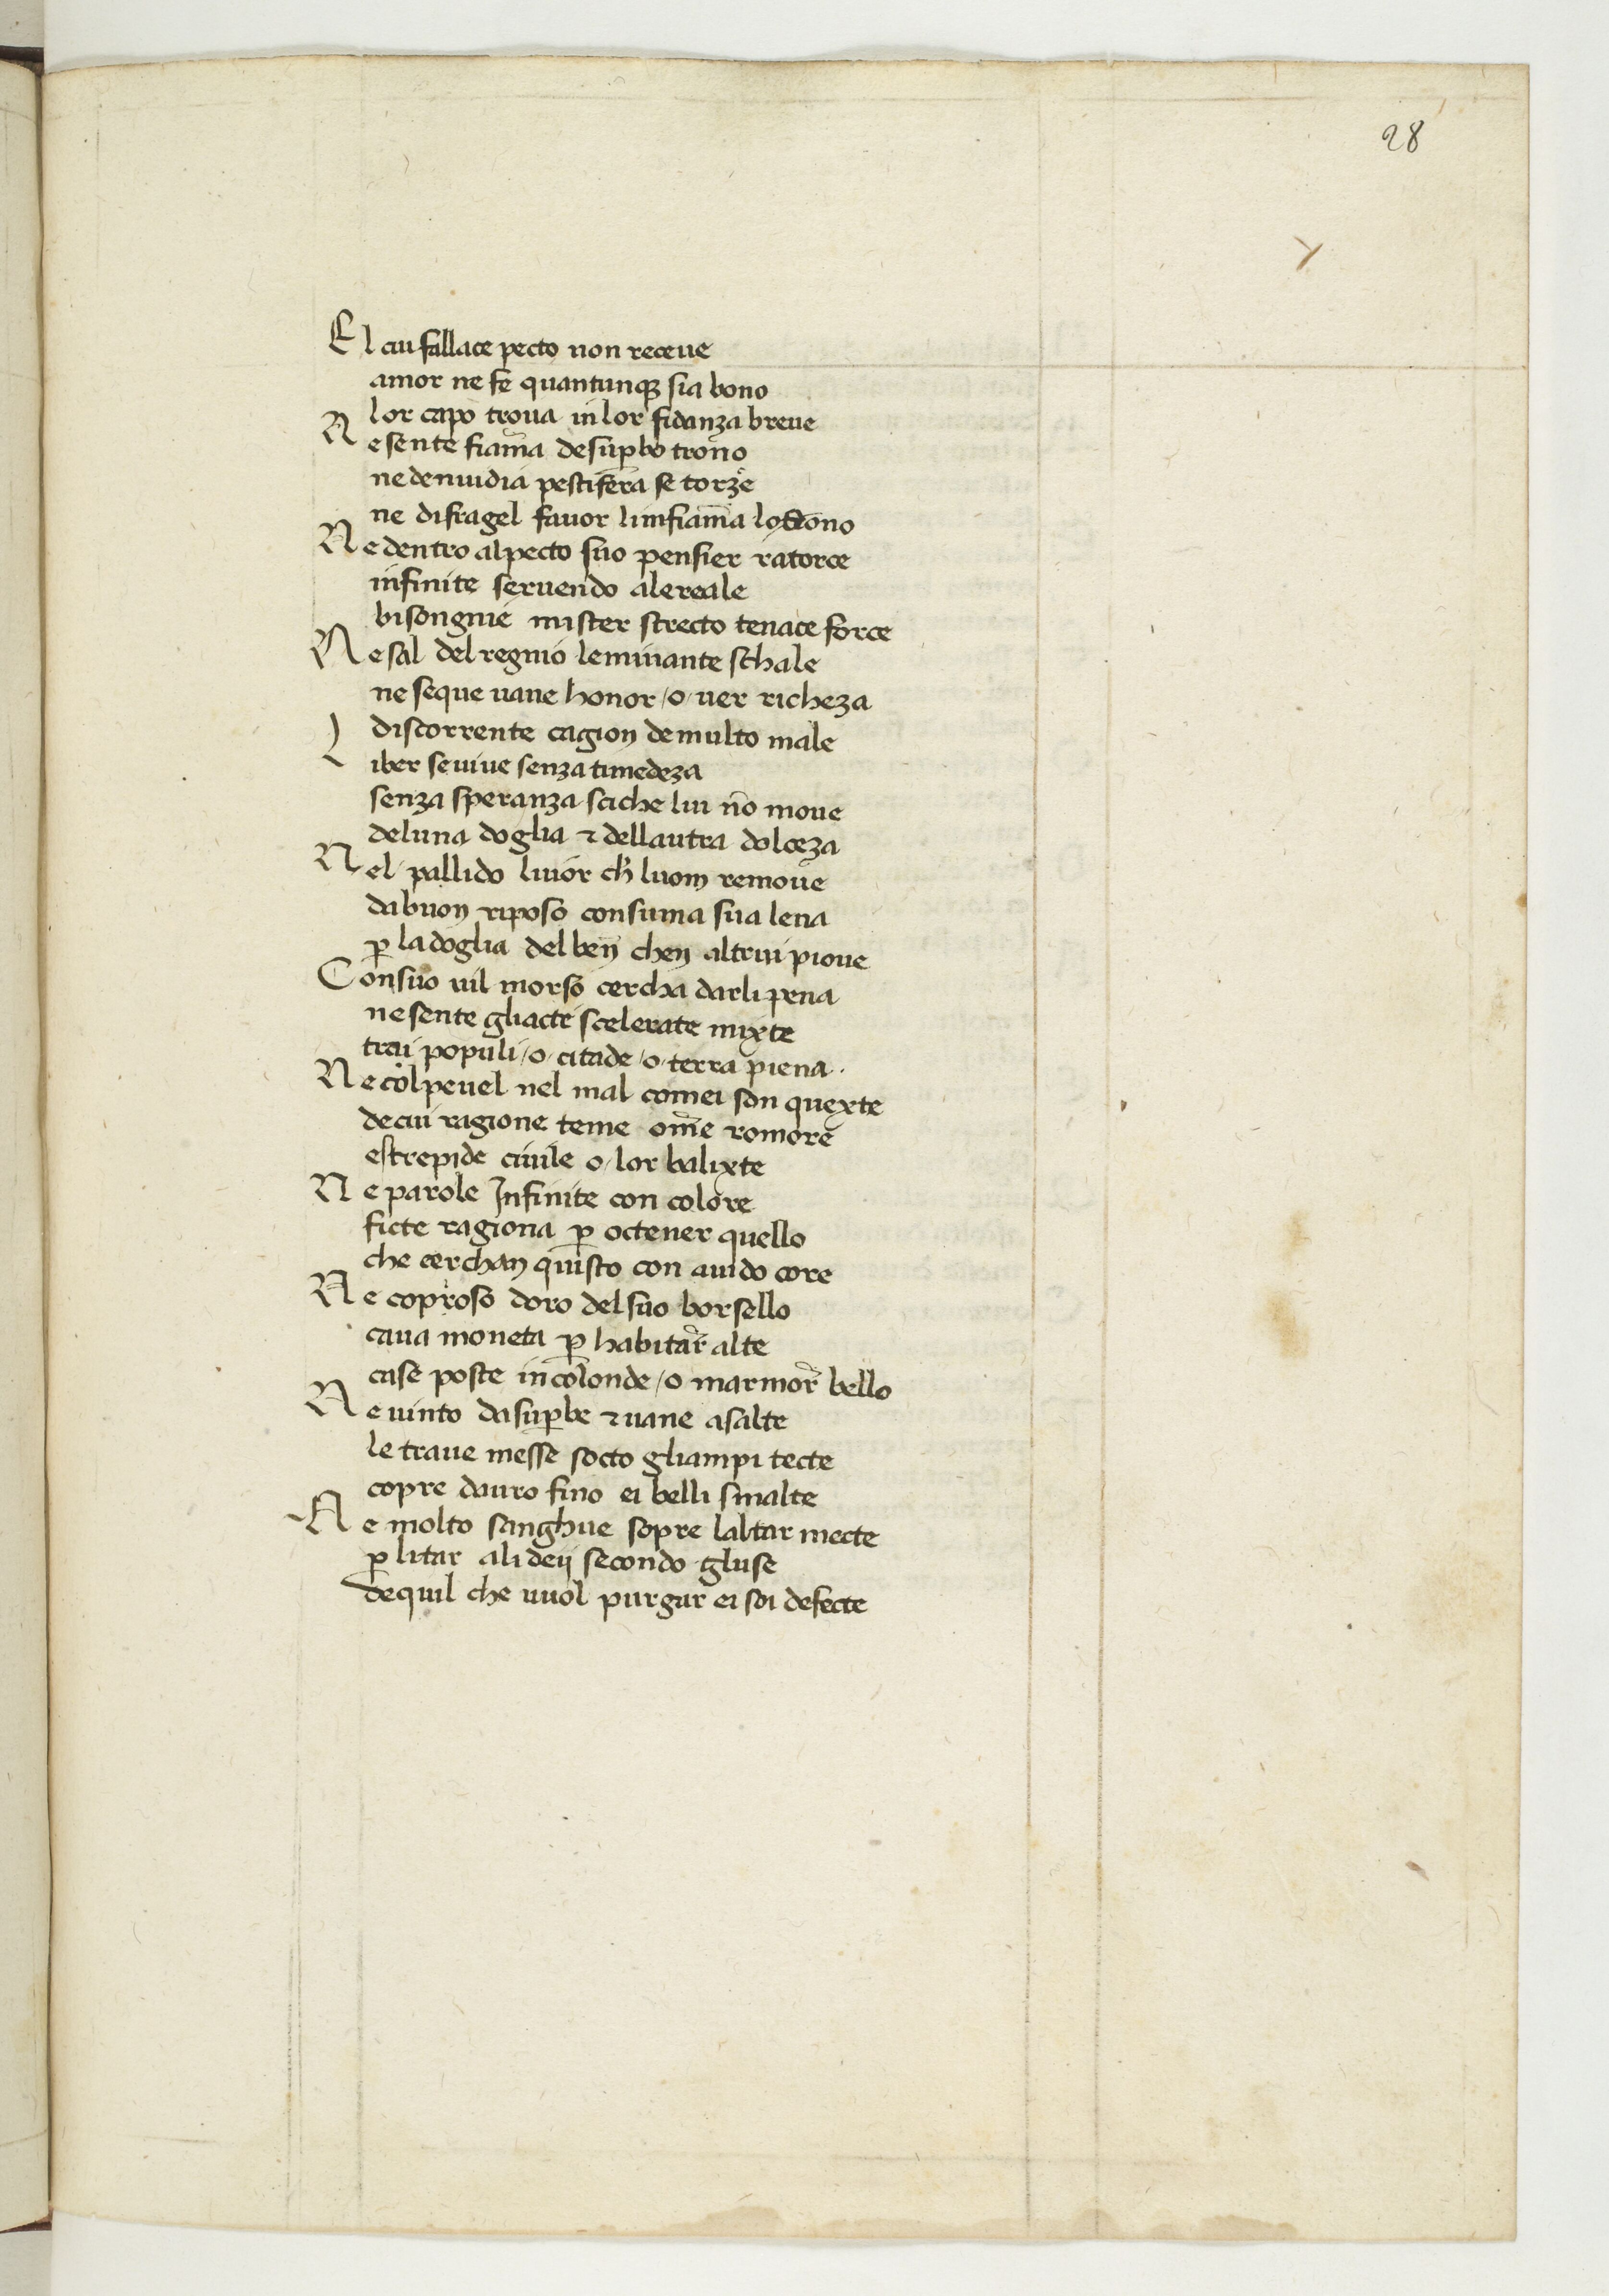 28
El cui fallace pecto non receue
amor ne fe quantunqȝ sia bono
lor capo troua in lor fidanza breue
Ne sente fiam̄a de suꝑbo trono
ne denuidia pestifera se torze
ne difragel fauor linfiam̄a lo
Ne dentro alpecto suo pensier ratorce
infinite seruendo alereale
bisongnie mister strecto tenace force
Ne sal del regnio leminante schale
ne seque uane honor /o/ uer richeza
discorrente cagion demulto male
Liber seuiue senza timedeza
senza speranza sciche lui nō moue
deluna doglia ⁊ dellautra dolceza
Nel pallido liuor ch̄ luom remoue
dabuon riposo consuma sua lena
ꝑ ladoglia del ben chen altrui pioue
Consuo uil morso cercha darli pena
ne sente gliacte scelerate mixte
trai populi /o/ citade /o/ terra piena .
Ne colpeuel nel mal comei son quexte
decui ragione teme om̄e romore
estrepide ciuile o/ lor balixte
Ne parole Infinite con colore
ficte ragiona ꝑ octener quello
che cerchan quisto con auido core
Ne coproso doro delsuo borsello
caua moneta ꝑ habitar̄ alte
case poste incolonde /o marmor̄ bello
Ne uinto dasuꝑbe ⁊ uane asalte
le traue messe socto gliampi tecte
copre dauro fino ei belli smalte
Ne molto sanghue sopre laltar mecte
ꝑ litar ali deij secondo gluse
dequil che uuol purgar ei soi defecte